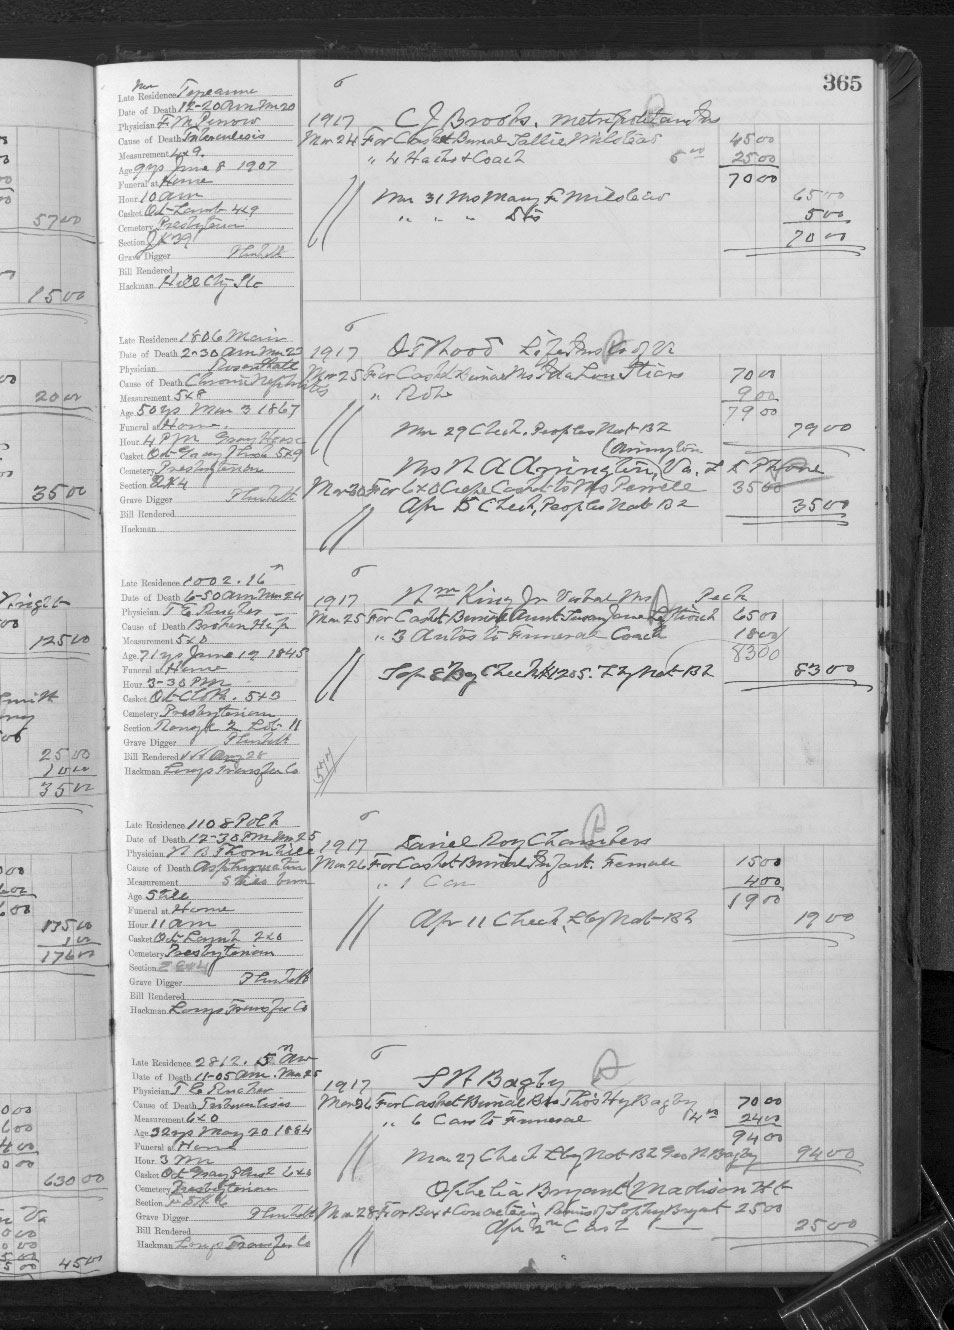 365
Late Residence
Date of Death 12-20 am Mar 20
Physician F M Perrow
Cause of Death Tuberculosis
Measurement 4x9.
Age 9 ys June 8 1907
Funeral at Home
Hour 10 am
Casket Oct Lamb 4x9
Cemetery Presbyterian
Section
Grave Digger Plunkett
Bill Rendered
Hackman Hill City
1917 C J Brooks. Metropolitan Ins
Mar 24 For Casket Burial Sallie Milstead 45 00
" 4 Hacks & Coach 5 00 25 00
70 00
Mar 31 Ms Mary F Milstead 65 00
" " " 5 00
70 00
Late Residence 1806 Main
Date of Death 2-30 am Mar 23
Physician Rosenthall
Cause of Death Chronic Nephritis
Measurement 5x8
Age 50 ys Mar 3 1867
Funeral at Home.
Hour 4 Pm
Casket Oct Gray Plush 5x9
Cemetery Presbyterian
Section
Grave Digger Plunkett
Bill Rendered
Hackman
1917 Life Ins Co of Va
Mar 25 For Casket Burial Ms Ida Lou 70 00
" Robe 9 00
79 00
Mar 29 Check. Peoples Nat B2 79 00
(Arrington
Ms N A Arrington, Va.
Mar 30 For 6x0 Crepe Casket to Ms 35 00
Apr 15 Check, Peoples Nat B2 35 00
Late Residence 1002. 16th
Date of Death 6-50 am Mar 24
Physician T E Rucher
Cause of Death Broken Hip
Measurement 5x0
Age 71 ys June 19 1845
Funeral at Home
Hour 3-30 Pm
Casket Oct Cloth. 5x3
Cemetery Presbyterian
Section Range 2 Lot 11
Grave Digger Plunkett
Bill Rendered Aug 28
Hackman Longs Transfer Co
1917 Wm King Jr
Mar 25 For Casket Burial Aunt Susan Jane 65 00
" 3 Autos to Funeral Coach 18 00
83 00
Sep 8 By Check #1205. Lby Nat B2 83 00
577
Late Residence 1108 Polk
Date of Death 12-30 Pm Mar 25
Physician N B Thornhill
Cause of Death Asphyxiation
Measurement Still born
Age Still
Funeral at Home
Hour 11 am
Casket Oct Lamb 2x0
Cemetery Presbyterian
Section
Grave Digger Plunkett
Bill Rendered
Hackman Longs Transfer Co
1917 Daniel Roy Chambers
Mar 26 For Casket Burial Infant. Female 15 00
" 1 Car 4 00
19 00
Apr 11 Check, Lby Nat B2 19 00
Late Residence 2812. 5th av
Date of Death 11-05 am. Mar 25
Physician T E Rucher
Cause of Death Tuberculosis
Measurement 6x0
Age 32 ys May 20 1884
Funeral at Home
Hour 3 Pm
Casket Oct Gray Plush 6x0
Cemetery Presbyterian
Section
Grave Digger Plunkett
Bill Rendered
Hackman Longs Transfer Co
1917 S H Bagby
Mar 26 For Casket Burial Bro Thos Hy Bagby 70 00
" 6 Cars to Funeral 4 00 24 00
94 00
Mar 27 Check Lby Nat B2 Geo N Bagby 94 00
Ophelia Bryant Madison Ht
Mar 28 For Box & Concreting Remains of Sophy Bryant 25 00
Apr 2nd Cash 25 00
57 00
15 00
20 00
35 00
Wright
125 00
Smith
25 00
10 00
35 00
175 00
1 00
176 00
630 00
45 00